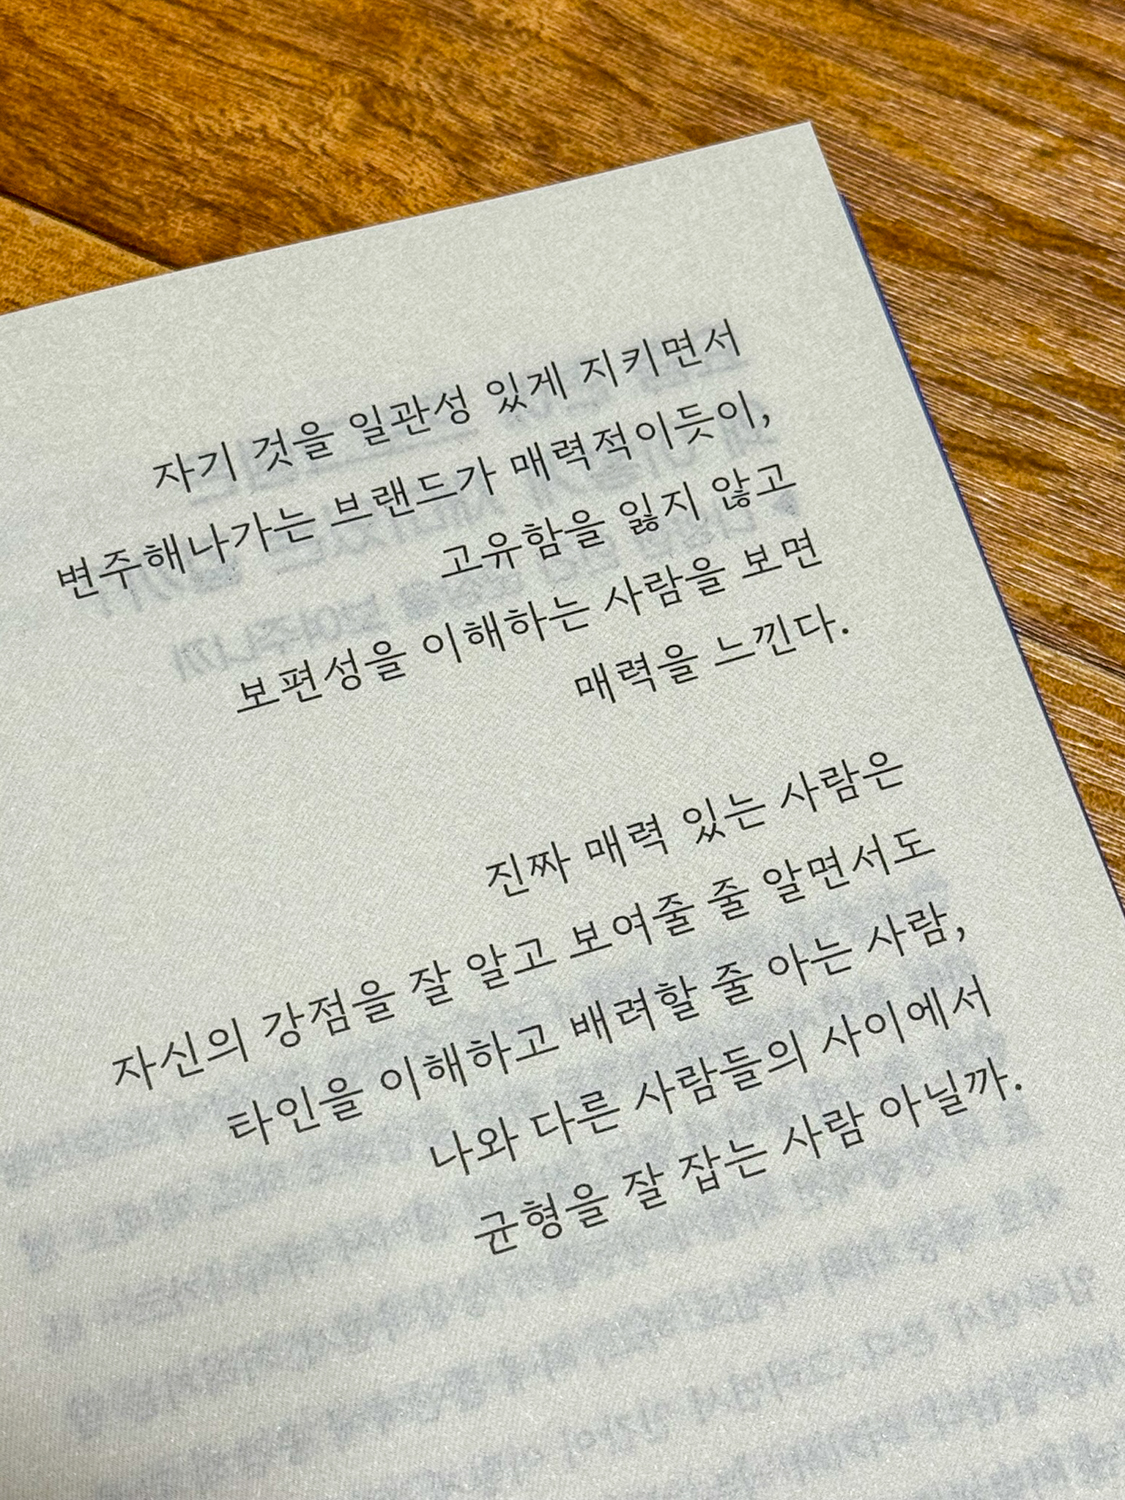 자기 것을 일관성 있게 지키면서
변주해나가는 브랜드가 매력적이듯이,
고유함을 잃지 않고
보편성을 이해하는 사람을 보면
매력을 느낀다.
진짜 매력 있는 사람은
자신의 강점을 잘 알고 보여줄 줄 알면서도
타인을 이해하고 배려할 줄 아는 사람,
나와 다른 사람들의 사이에서
균형을 잘 잡는 사람 아닐까.